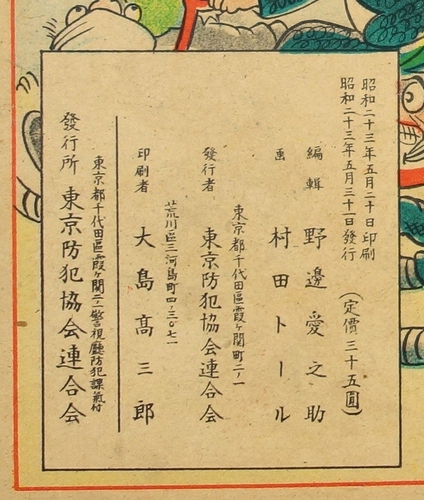 昭和二十三年五月二十日印刷
昭和二十三年五月三十一日發行
(定價三十五圓)
編輯 野邊愛之助
画 村田トール
東京都千代田區霞ヶ関町二ノ一
發行者 東京防犯協会連合会
荒川區三河島町四ノ三〇七一
印刷者 大島髙三郎
東京都千代田區霞ヶ関二ノ一警視廳防犯課氣付
發行所 東京防犯協会連合会